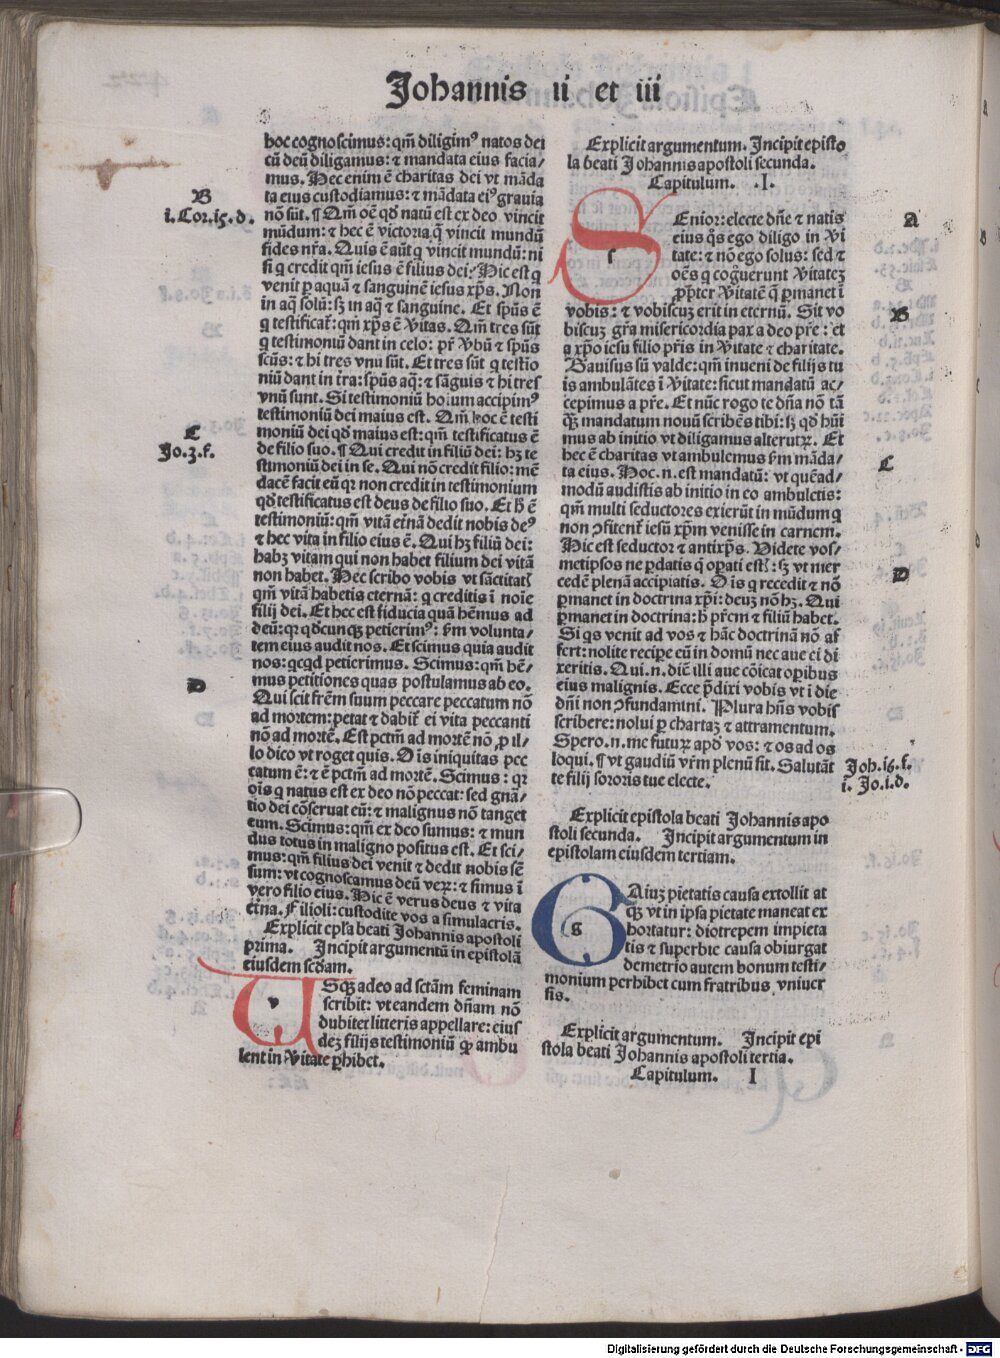 Johannis ii et iii
hoc cognoscimus: qm̄ diligimꝰ natos dei
cū deū diligamus: ⁊ mandata eius facia/
mus. Hec enim ē charitas dei vt māda
ta eius custodiamus: ⁊ mādata eiꝰ grauia
nō sūt. ¶ Qm̄ oē qd̄ natū est ex deo vincit
mūdum: ⁊ hec ē victoria q̄ vincit mundū
fides nr̄a. Quis ē aūt q vincit mundū: ni
si q credit qm̄ iesus ē filius dei? Hic est q
venit ꝑ aquā ⁊ sanguinē iesus xp̄s. Non
in aq̄ solū: sꝫ in aq̄ ⁊ sanguine. Et sp̄us ē
q testificat̄: qm̄ xp̄s ē Vitas. Qm̄ tres sūt
q testimoniū dant in celo: pr̄ Vbū ⁊ sp̄us
scūs: ⁊ hi tres vnū sunt. Et tres sūt q testio
niū dant in tr̄ra: sp̄us aq̄: ⁊ sāguis ⁊ hi tres
vnū sunt. Si testimoniū hoium accipimꝰ
testimoniū dei maius est. Qm̄ hoc ē testi
moniū dei qd̄ maius est: qm̄ testificatus ē
de filio suo. ¶ Qui credit in filiū dei: hꝫ te
stimoniū dei in se. Qui nō credit filio: mē
dacē facit eū qꝛ non credit in testimonium
qd̄ testificatus est deus de filio suo. Et h̄ ē
testimoniū: qm̄ vitā et̄nā dedit nobis deꝰ
⁊ hec vita in filio eius ē. Qui hꝫ filiū dei:
habꝫ vitam qui non habet filium dei vitā
non habet. Hec scribo vobis vt sāctitat̄
qm̄ vitā habetis eternā: q creditis ī noīe
filij dei. Et hec est fiducia quā hēmus ad
deū: qꝛ qd̄cunqꝫ petierimꝰ: s̄m volunta/
tem eius audit nos. Et scimus quia audit
nos: qcqd petierimus. Scimus: qm̄ hē/
mus petitiones quas postulamus ab eo.
Qui scit fr̄em suum peccare peccatum nō
ad mortem: petat ⁊ dabit̄ ei vita peccanti
nō ad mortē. Est pctm̄ ad mortē nō ꝓ il/
lo dico vt roget quis. Ois iniquitas pec
catum ē: ⁊ ē pctm̄ ad mortē. Scimus: qꝛ
oīs q natus est ex deo nō peccat: sed gnā/
tio dei cōseruat eū: ⁊ malignus nō tanget
eum. Scimus: qm̄ ex deo sumus: ⁊ mun
dus totus in maligno positus est. Et sci/
mus: qm̄ filius dei venit ⁊ dedit nobis sē
sum: vt cognoscamus deū veꝝ: ⁊ simus ī
vero filio eius. Hic ē verus deus ⁊ vita
et̄na. Filioli: custodite vos a simulacris.
Explicit ep̄la beati Johannis apostoli
prima. Jncipit argumentū in epistolā
eiusdem scd̄am.
V v Sqꝫ adeo ad sctām feminam
scribit: vt eandem dn̄am nō
dubitet litteris appellare: eius
deꝫ filijs testimoniū ꝙ ambu
lent in Vitate ꝑhibet.
B
i. Cor. 15. d.
C
Jo. 3. f.
D
Explicit argumentum. Jncipit episto
la beati Johannis apostoli secunda.
Capitulum. .I.
S s Enior: electe dn̄e ⁊ natis
eius q̄s ego diligo in Vi
tate: ⁊ nō ego solus: sed ⁊
oēs q coḡuerunt Vitateꝫ
ꝓpter Vitatē q̄ ꝑmanet ī
vobis: ⁊ vobiscuꝫ erit in eternū. Sit vo
biscuꝫ gr̄a misericordia pax a deo pr̄e: et
a xp̄o iesu filio pr̄is in Vitate ⁊ charitate.
Gauisus sū valde: qm̄ inueni de filijs tu
is ambulātes ī Vitate: sicut mandatū ac/
cepimus a pr̄e. Et nūc rogo te dn̄a nō tā
qꝫ mandatum nouū scribēs tibi: sꝫ qd̄ hūi
mus ab initio vt diligamus alterutꝝ. Et
hec ē charitas vt ambulemus s̄m māda/
ta eius. Hoc .n. est mandatū: vt quēad/
modū audistis ab initio in eo ambuletis:
qm̄ multi seductores exierūt in mūdum q
non ꝯfitent̄ iesū xp̄m venisse in carnem.
Hic est seductor ⁊ antixp̄s. Videte vos/
metipsos ne ꝑdatis q̄ oꝑati estꝭ: sꝫ vt mer
cedē plenā accipiatis. Ois q recedit ⁊ nō
ꝑmanet in doctrina xp̄i: deuꝫ nō hꝫ. Qui
ꝑmanet in doctrina: h̄ pr̄em ⁊ filiū habet.
Si qs venit ad vos ⁊ hāc doctrinā nō af
fert: nolite recipe eū in domū nec aue ei di
xeritis. Qui .n. diē illi aue cōicat oꝑibus
eius malignis. Ecce p̄dixi vobis vt ī die
dn̄i non ꝯfundamini. Plura hn̄s vobis
scribere: nolui ꝑ chartaꝫ ⁊ attramentum.
Spero .n. me futuꝝ apd̄ vos: ⁊ os ad os
loqui. ¶ vt gaudiū vr̄m plenū sit. Salutāt
te filij sororis tue electe.
Explicit epistola beati Johannis apo
stoli secunda. Jncipit argumentum in
epistolam eiusdem tertiam.
G g Aiuꝫ pietatis causa extollit at
qꝫ vt in ipsa pietate maneat ex
hortatur: diotrepem impieta
tis ⁊ superbie causa obiurgat
demetrio autem bonum testi/
monium perhibet cum fratribus vniuer
sis.
Explicit argumentum. Jncipit epi
stola beati Johannis apostoli tertia.
Capitulum. I
A
B
C
D
Joh. 15. f.
i. Jo. i. d.
Digitalisierung gefördert durch die Deutsche Forschungsgemeinschaft - DFG